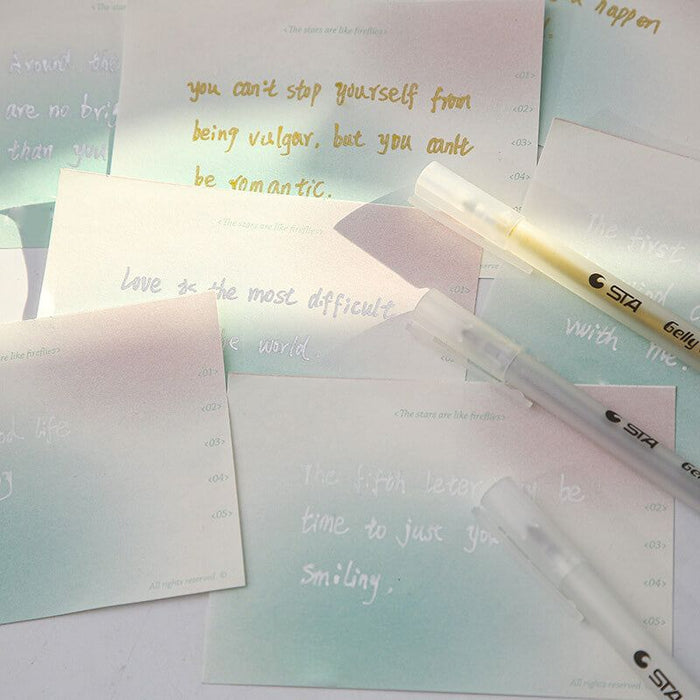 <The stars are like fireflies>
happen
Around the
are no
than you
<01>
<02>
<03>
<04>
you can't stop yourself from
being vulgar, but you can't
be romantic.
<The stars are like fireflies>
<01>
Love is the most difficult
world.
The first
with me.
STA Gelly
re like fireflies>
<01>
<02>
<03>
<04>
<05>
life
All rights reserved ©
STA Gel
<The stars are like fireflies>
<02>
<03>
<04>
<05>
The fifth leter be
time to just you
smiling.
All rights reserved
STA